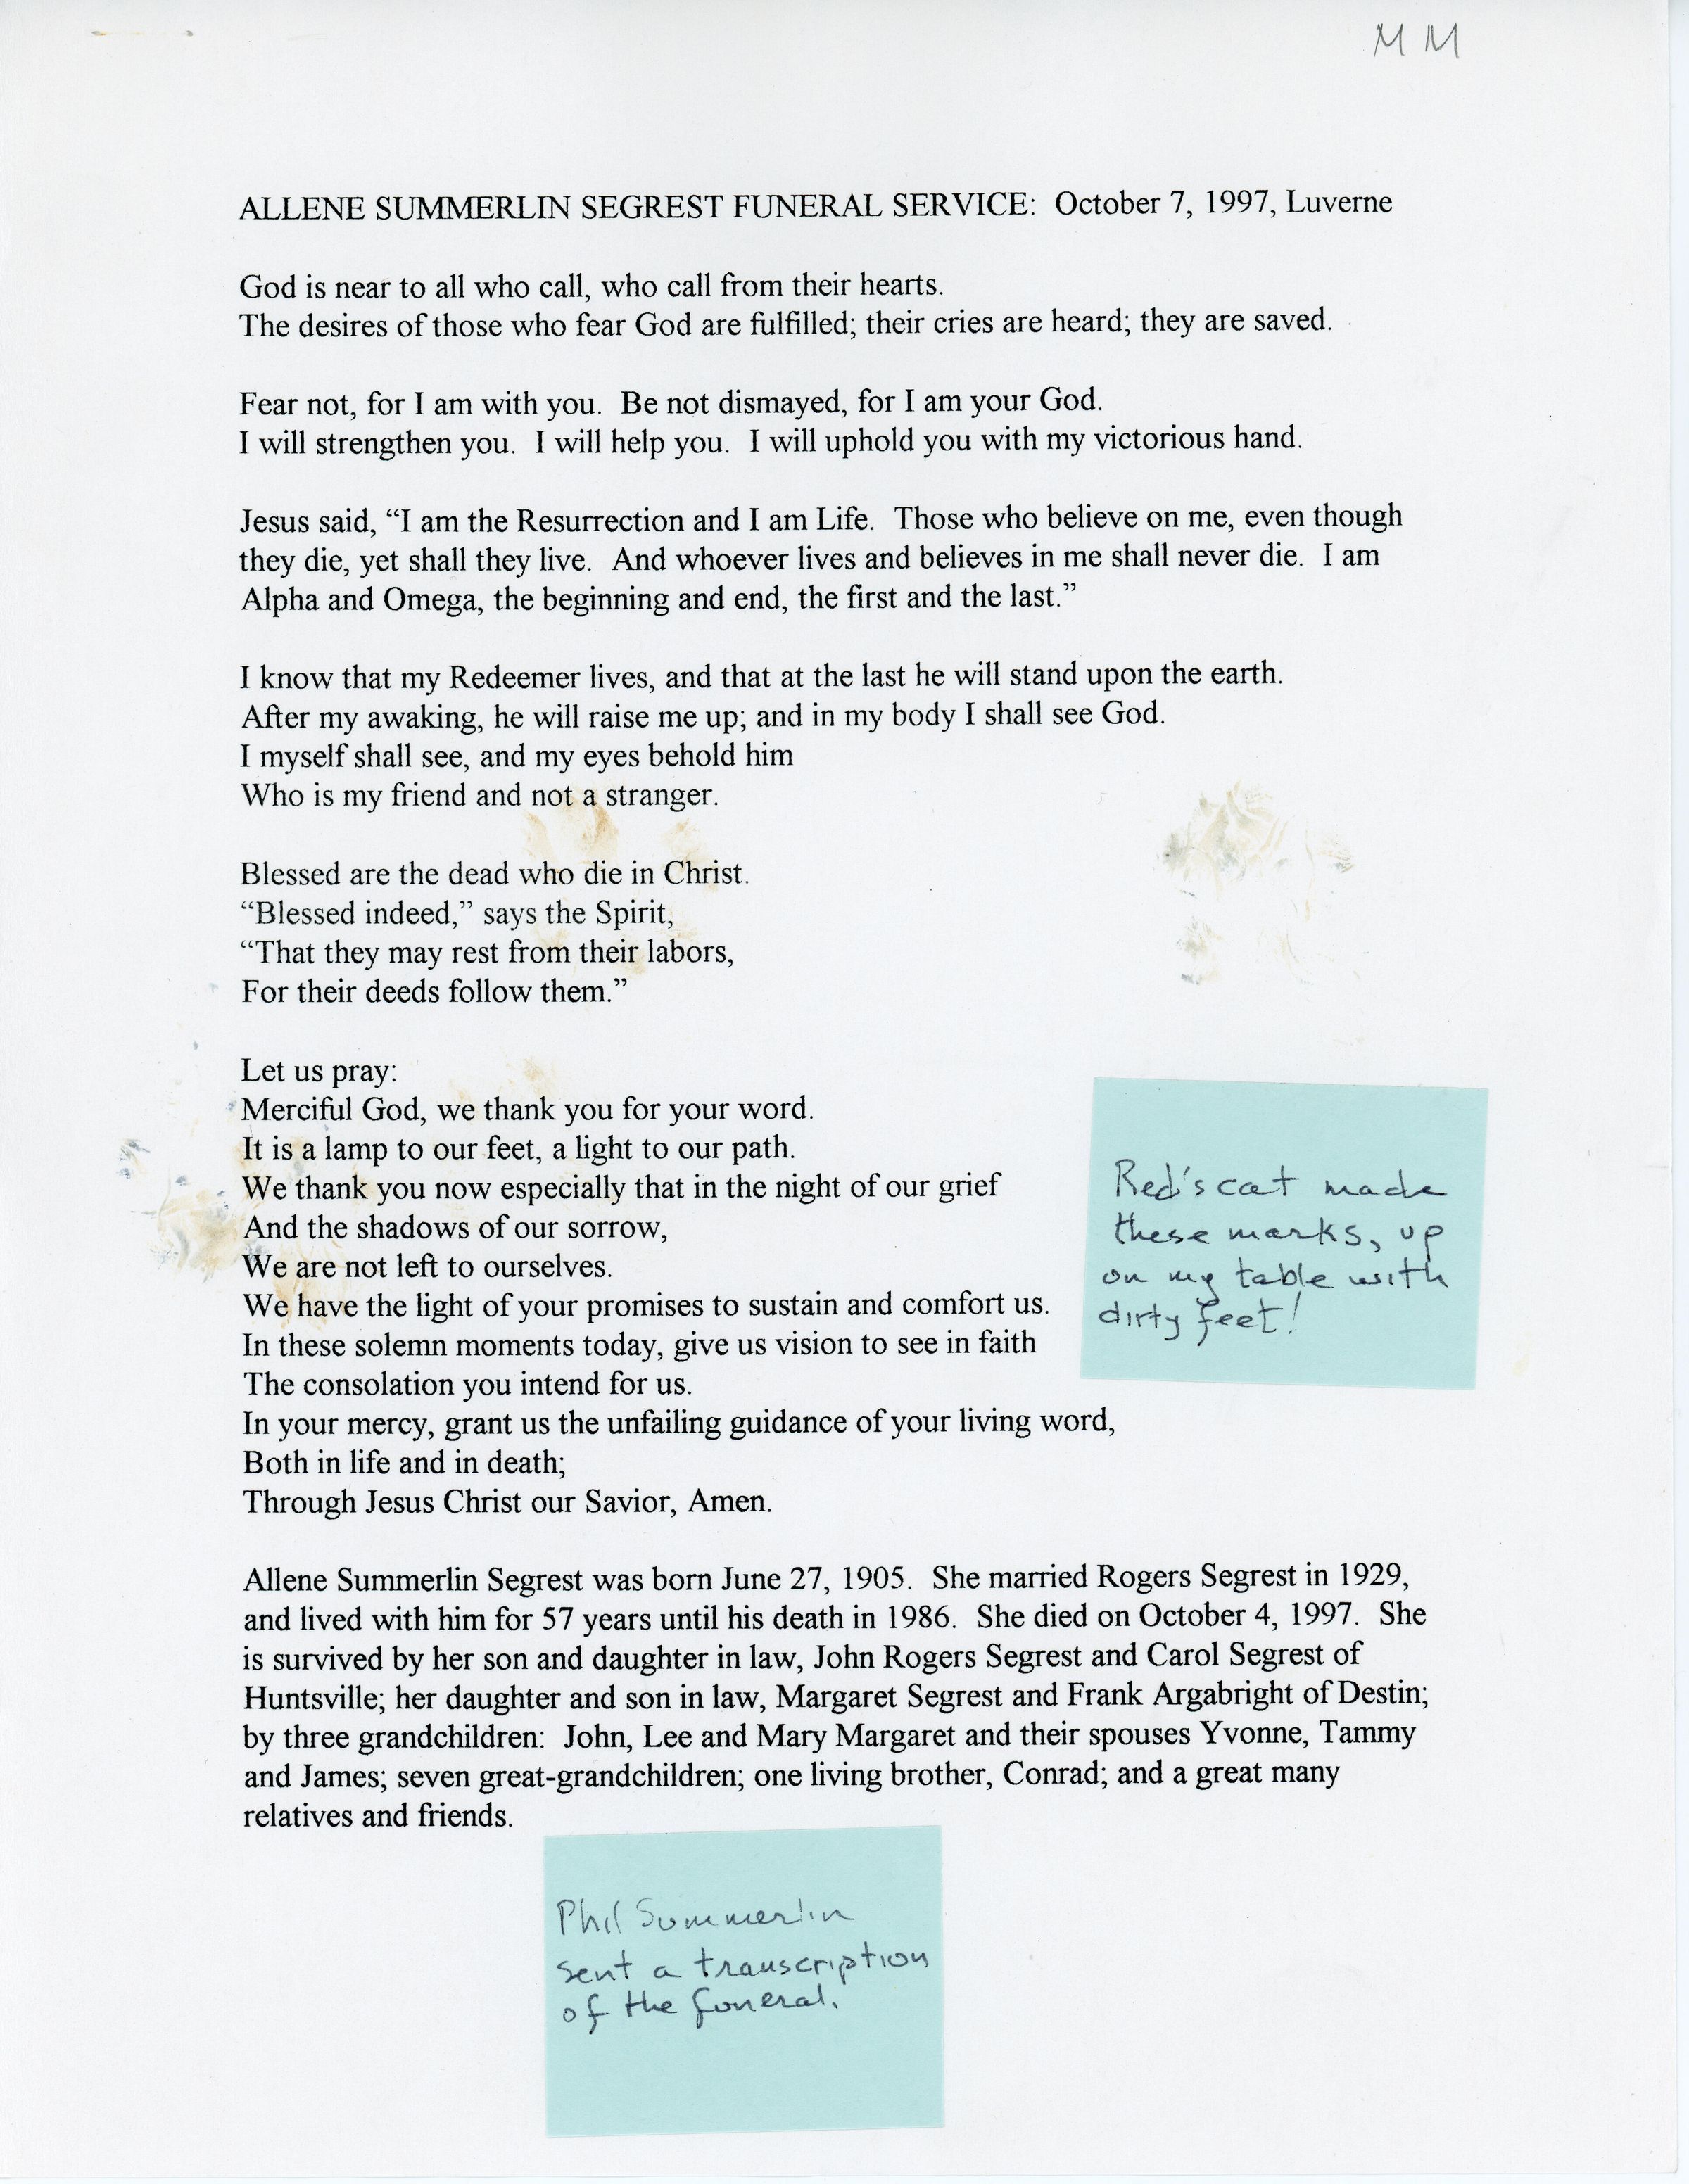 M M
ALLENE SUMMERLIN SEGREST FUNERAL SERVICE:  October 7, 1997, Luverne
God is near to all who call, who call from their hearts.
The desires of those who fear God are fulfilled; their cries are heard; they are saved.
Fear not, for I am with you.  Be not dismayed, for I am your God.
I will strengthen you.  I will help you.  I will uphold you with my victorious hand.
Jesus said, “I am the Resurrection and I am Life.  Those who believe on me, even though
they die, yet shall they live.  And whoever lives and believes in me shall never die.  I am
Alpha and Omega, the beginning and end, the first and the last.”
I know that my Redeemer lives, and that at the last he will stand upon the earth.
After my awaking, he will raise me up; and in my body I shall see God.
I myself shall see, and my eyes behold him
Who is my friend and not a stranger.
Blessed are the dead who die in Christ.
“Blessed indeed,” says the Spirit,
“That they may rest from their labors,
For their deeds follow them.”
Let us pray:
Merciful God, we thank you for your word.
It is a lamp to our feet, a light to our path.
We thank you now especially that in the night of our grief
And the shadows of our sorrow,
We are not left to ourselves.
We have the light of your promises to sustain and comfort us.
In these solemn moments today, give us vision to see in faith
The consolation you intend for us.
In your mercy, grant us the unfailing guidance of your living word,
Both in life and in death;
Through Jesus Christ our Savior, Amen.
Red's cat made
these marks, up
on my table with
dirty feet!
Allene Summerlin Segrest was born June 27, 1905.  She married Rogers Segrest in 1929,
and lived with him for 57 years until his death in 1986.  She died on October 4, 1997.  She
is survived by her son and daughter in law, John Rogers Segrest and Carol Segrest of
Huntsville; her daughter and son in law, Margaret Segrest and Frank Argabright of Destin;
by three grandchildren:  John, Lee and Mary Margaret and their spouses Yvonne, Tammy
and James; seven great-grandchildren; one living brother, Conrad; and a great many
relatives and friends.
Phil Summerlin
sent a transcription
of the funeral.